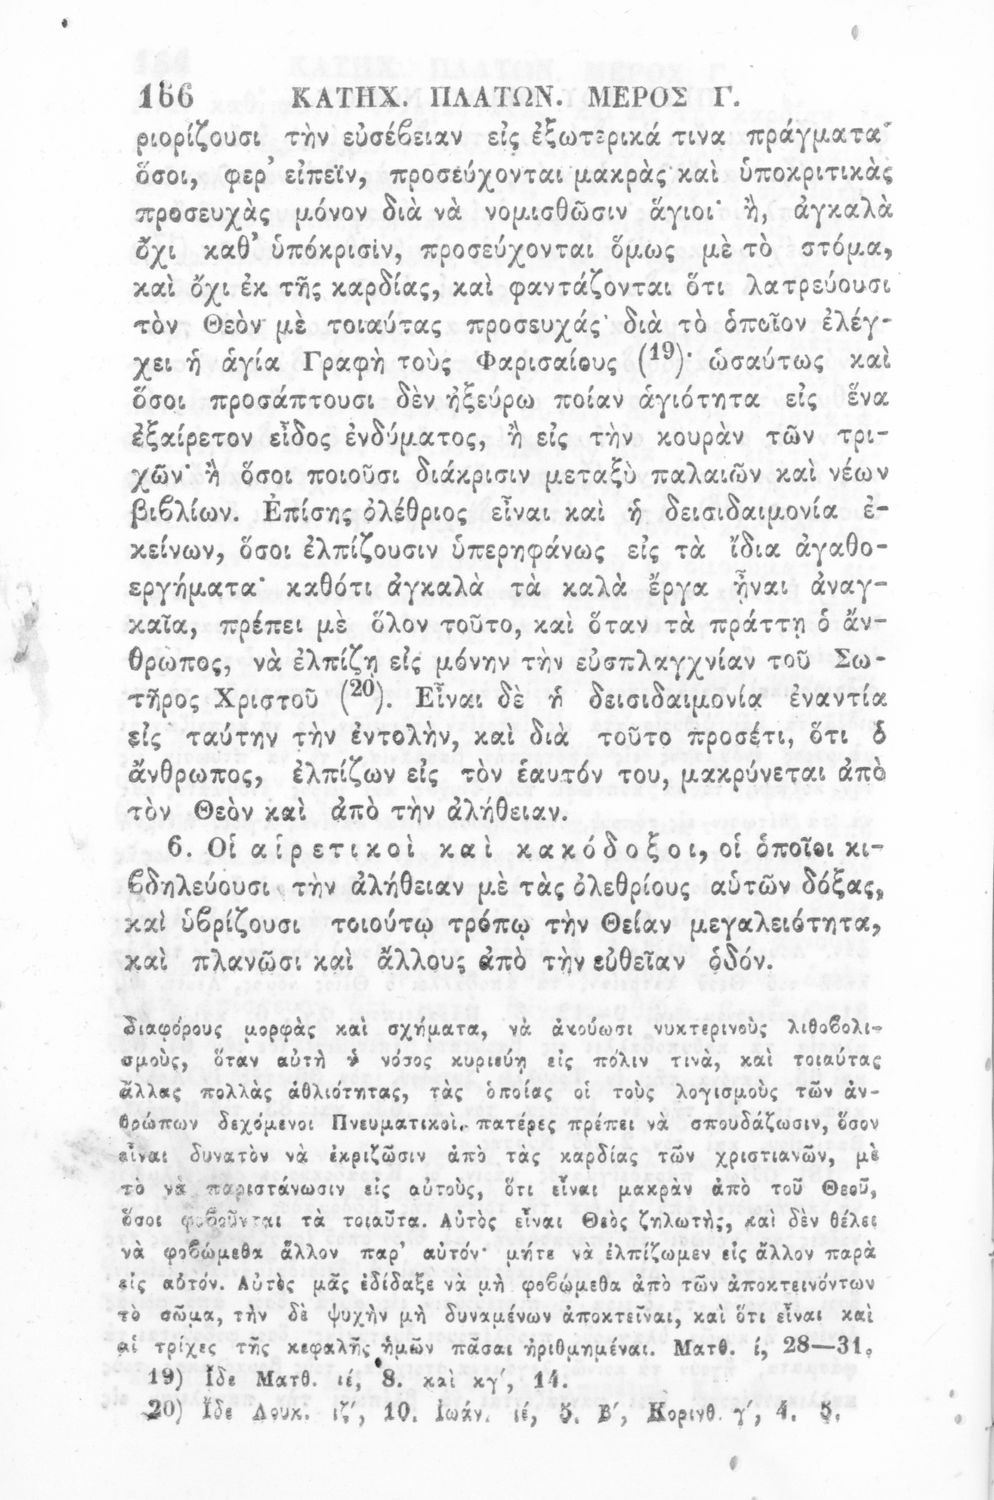 166 ΚΑΤΗΧ. ΠΛΑΤΩΝ. ΜΕΡΟΣ Γ.
ριορίζουσι τὴν εὐσέβειαν εἰς ἐξωτερικά τινα πράγματα·
ὅσοι, φερ’ εἰπεῖν, προσεύχονται μακρὰς καὶ ὑποκριτικὰς
προσευχὰς μόνον διὰ νὰ νομισθῶσιν ἅγιοι· ἢ, ἀγκαλὰ
ὄχι καθ’ ὑπόκρισιν, προσεύχονται ὅμως μὲ τὸ στόμα,
καὶ ὄχι ἐκ τῆς καρδίας, καὶ φαντάζονται ὅτι λατρεύουσι
τὸν Θεὸν μὲ τοιαύτας προσευχάς· διὰ τὸ ὁποῖον ἐλέγ-
χει ἡ ἁγία Γραφὴ τοὺς Φαρισαίους (19)· ὡσαύτως καὶ
ὅσοι προσάπτουσι δὲν ἠξεύρω ποίαν ἁγιότητα εἰς ἕνα
ἐξαίρετον εἶδος ἐνδύματος, ἢ εἰς τὴν κουρὰν τῶν τρι-
χῶν· ἢ ὅσοι ποιοῦσι διάκρισιν μεταξὺ παλαιῶν καὶ νέων
βιβλίων. Ἐπίσης ὀλέθριος εἶναι καὶ ἡ δεισιδαιμονία ἐ-
κείνων, ὅσοι ἐλπίζουσιν ὑπερηφάνως εἰς τὰ ἴδια ἀγαθο-
εργήματα· καθότι ἀγκαλὰ τὰ καλὰ ἔργα ἦναι ἀναγ-
καῖα, πρέπει μὲ ὅλον τοῦτο, καὶ ὅταν τὰ πράττῃ ὁ ἄν-
θρωπος, νὰ ἐλπίζῃ εἰς μόνην τὴν εὐσπλαγχνίαν τοῦ Σω-
τῆρος Χριστοῦ (20). Εἶναι δὲ ἡ δεισιδαιμονία ἐναντία
εἰς ταύτην τὴν ἐντολὴν, καὶ διὰ τοῦτο προσέτι, ὅτι ὁ
ἄνθρωπος, ἐλπίζων εἰς τὸν ἑαυτόν του, μακρύνεται ἀπὸ
τὸν Θεὸν καὶ ἀπὸ τὴν ἀλήθειαν.
6. Οἱ αἱρετικοὶ καὶ κακόδοξοι, οἱ ὁποῖοι κι-
βδηλεύουσι τὴν ἀλήθειαν μὲ τὰς ὀλεθρίους αὑτῶν δόξας,
καὶ ὑβρίζουσι τοιούτῳ τρόπῳ τὴν Θείαν μεγαλειότητα,
καὶ πλανῶσι καὶ ἄλλους ἀπὸ τὴν εὐθεῖαν ὁδόν.
διαφόρους μορφὰς καὶ σχήματα, νὰ ἀκούωσι νυκτερινοὺς λιθοβολι-
σμοὺς, ὅταν αὐτὴ ἡ νόσος κυριεύῃ εἰς πόλιν τινὰ, καὶ τοιαύτας
ἄλλας πολλὰς ἀθλιότητας, τὰς ὁποίας οἱ τοὺς λογισμοὺς τῶν ἀν-
θρώπων δεχόμενοι Πνευματικοὶ πατέρες πρέπει νὰ σπουδάζωσιν, ὅσον
εἶναι δυνατὸν νὰ ἐκριζῶσιν ἀπὸ τὰς καρδίας τῶν χριστιανῶν, μὲ
τὸ νὰ παριστάνωσιν εἰς αὐτοὺς, ὅτι εἶναι μακρὰν ἀπὸ τοῦ Θεοῦ,
ὅσοι φοβοῦνται τὰ τοιαῦτα. Αὐτὸς εἶναι Θεὸς ζηλωτὴς, καὶ δὲν θέλει
νὰ φοβώμεθα ἄλλον παρ’ αὐτόν· μήτε νὰ ἐλπίζωμεν εἰς ἄλλον παρὰ
εἰς αὐτόν. Αὐτὸς μᾶς ἐδίδαξε νὰ μὴ φοβώμεθα ἀπὸ τῶν ἀποκτεινόντων
τὸ σῶμα, τὴν δὲ ψυχὴν μὴ δυναμένων ἀποκτεῖναι, καὶ ὅτι εἶναι καὶ
αἱ τρίχες τῆς κεφαλῆς ἡμῶν πᾶσαι ἠριθμημέναι. Ματθ. ί, 28—31.
19) Ἴδε Ματθ. ιέ, 8. καὶ κγ΄, 14.
20) Ἴδε Λουκ. ιζ΄, 10. Ἰωάν. ιέ, 5. Β΄, Κορινθ. γ΄, 4. 5.